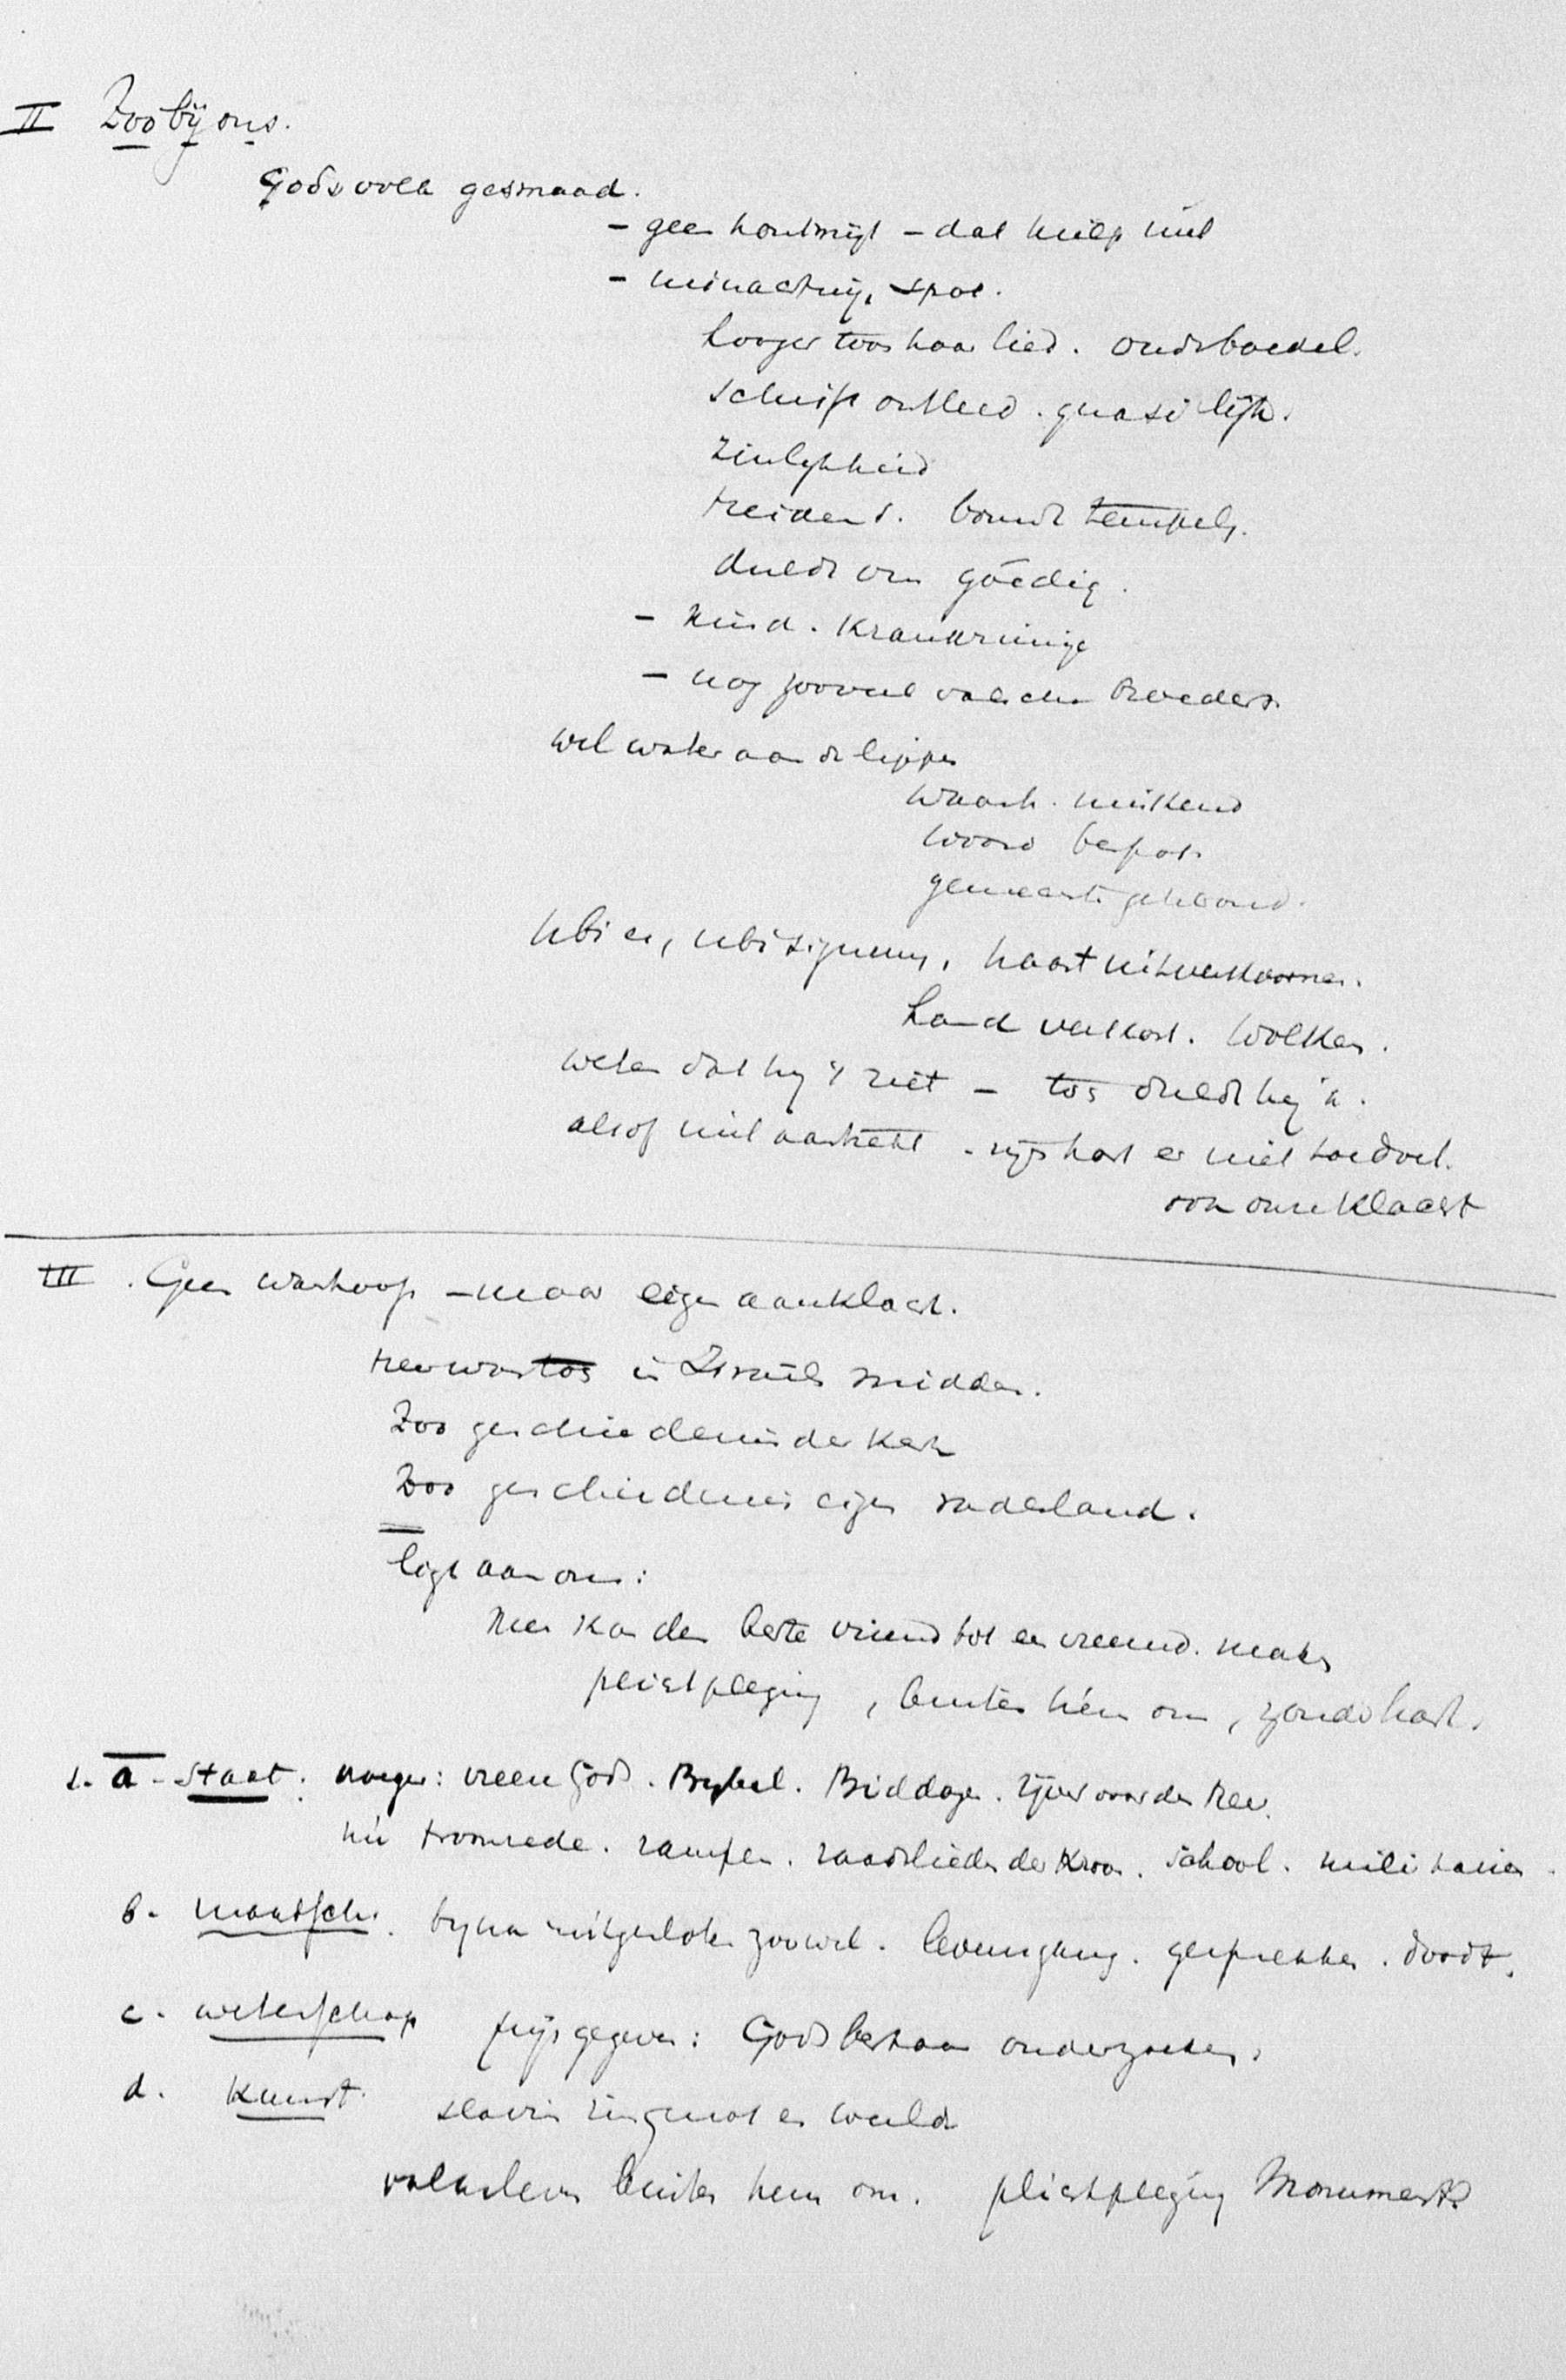 II Zoo bij ons.
Gods volk gesmaad.
- geen houtmijt - dat hielp niet
- minachting, spot.
hooger toon haar lied. oude boedel.
schrift ontleed. quasi
zinlijkheid
Heidend. bouwt tempels.
duldt ons goedig.
- kind.
- nog zooveel valsche broeders.
wel water aan de lippen
waarh. miskend
woord bespot
gemeente gehoond.
ubi es, ubi signum, haast uitverkoornen.
hand verkort. Wolken.
weten dat hij 't ziet - toch duldt hij 't.
alsof niet aantrekt - zijn hart er niet
ook onze klacht
III. Geen wanhoop - maar eigen aanklacht.
Heer was toch in Israels midden.
Zoo geschiedenis der kerk
Zoo geschiedenis eigen vaderland.
ligt aan ons:
Men kan den beste vriend tot een vreemd. maken
plichtpleging, buiten hem om, zonde hart.
1. a - Staat. vroeger: vreeze Gods. Bybel. Biddagen. IJver voor den Heer.
nu troonrede. rampen. raadslieden der Kroon. school. militairen.
b. maatsch. byna uitgesloten zoowel. levensgang. gesprekken. doodt.
c. wetenschap prijsgegeven: Gods bestaan onderzoeken.
d. Kunst. slavin zingenot en weelde
volksleven buiten hem om. plichtpleging Monument?